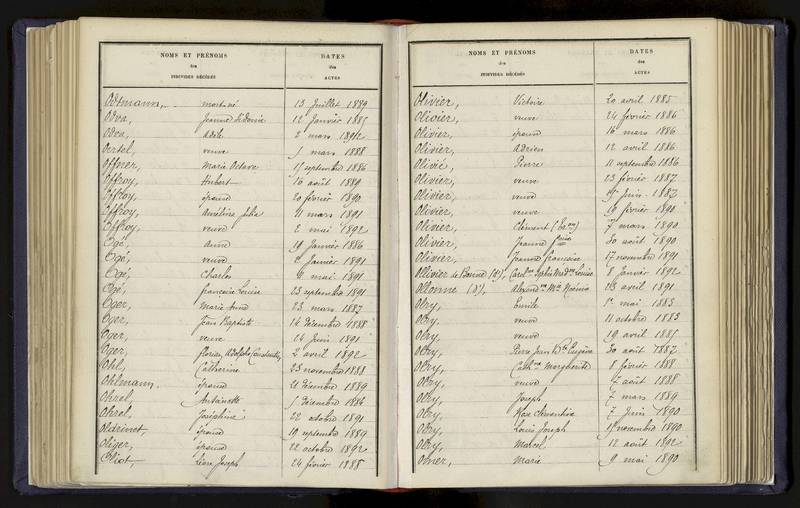 NOMS ET PRÉNOMS
des
INDIVIDUS DÉCÉDÉS
DATES
des
ACTES
Odtmann, mort né 13 Juillet 1889
Odva, Jeanne Sidonie 12 Janvier 1885
Adèle 2 mars 1892
Oertel, veuve 1 mars 1888
Offner, Marie Octave septembre 1886
Offroy, Hubert 16 août 1889
Offroy, épouse 20 février 1890
Offroy, Julie 11 mars 1891
Offroy, veuve 2 mai 1892
Ogé, Anne 19 Janvier 1886
Ogé, veuve 2 Janvier 1891
Ogé, Charles 9 mai 1891
Ogé, françoise Louise 23 septembre 1891
Oger, Marie Anne 23 mars 1887
Oger, Jean Baptiste 14 décembre 1888
Oger, veuve 24 Juin 1891
Oger, Florian, Adolphe, Constantin 2 avril 1892
Ohl, Catherine 23 novembre 1888
Ohlmann, épouse 21 décembre 1889
Ohrel, Antoinette décembre 1884
Ohrel, Joséphine 22 octobre 1891
Oldrinet, épouse 19 septembre 1889
Oliger, épouse 22 octobre 1892
Oliot, Léon Joseph 24 février 1888
NOMS ET PRÉNOMS
des
INDIVIDUS DÉCÉDÉS
DATES
des
ACTES
Olivier, Victoire 20 avril 1885
Olivier, veuve 24 février 1886
Olivier, épouse 16 mars 1886
Olivier, Adrien 12 avril 1886
Olivié, Pierre 11 septembre 1886
Olivier, veuve 23 février 1887
Olivier, veuve 19 Juin 1887
Olivier, veuve 19 février 1890
Olivier, Clément 7 mars 1890
Olivier, Jeanne 30 août 1890
Olivier, Jeanne françoise 17 novembre 1891
Ollivier de (d'), Sophie Louise 8 Janvier 1892
Ollonne (d'), 23 avril 1891
Olry, Emile 1er mai 1883
Olry, veuve 11 octobre 1883
Olry, veuve 19 avril 1885
Olry, Pierre Jean Bte Eugène 30 août 1887
Olry, Cathne Marguerite 8 février 1888
Olry, veuve 7 août 1888
Olry, Joseph 7 mars 1889
Olry, Clémentine 7 Juin 1890
Olry, Louis Joseph novembre 1890
Olry, Marcel 12 août 1892
Marie 9 mai 1890